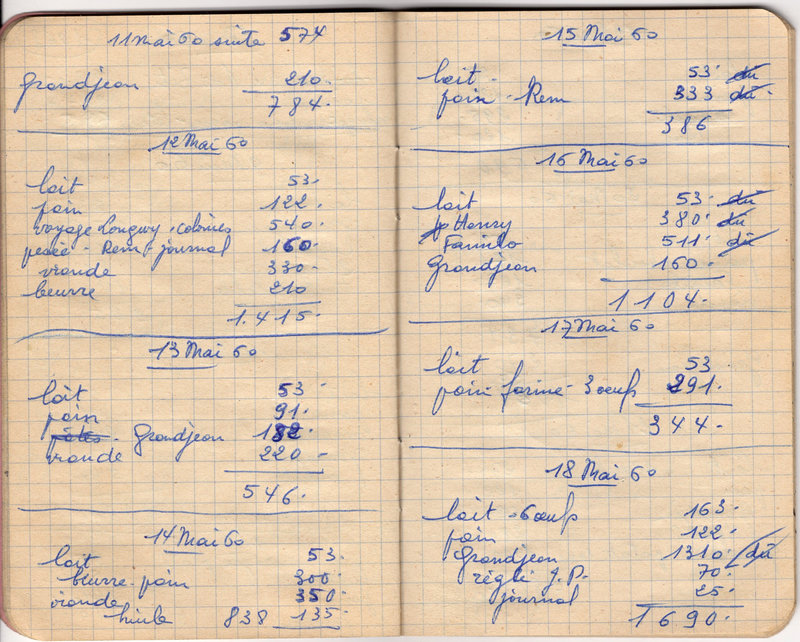 11 mai 60 suite 574
Grandjean 210.
784.
12 Mai 60
lait 53.
pain 122.
voyage Longwy - colonies 540.
Rem - journal 160.
viande 330.
beurre 210
1.415.
13 Mai 60
lait 53.
pain 91.
pâtes - Grandjean 182.
viande 220
546.
14 Mai 60
lait 53.
beurre - pain 300.
viande 350.
huile 838 135.
15 Mai 60
lait - 53. dû
pain - Rem 333 dû.
386
16 Mai 60
lait 53. dû
Henry 380. dû
Familo 511. dû
Grandjean 160.
1104.
17 Mai 60
lait 53
pain farine - 3 oeufs 291.
344.
18 Mai 60
lait - 6 oeufs 163.
pain 122.
Grandjean 1310. dû
réglé J.P. 70.
journal 25.
1690.